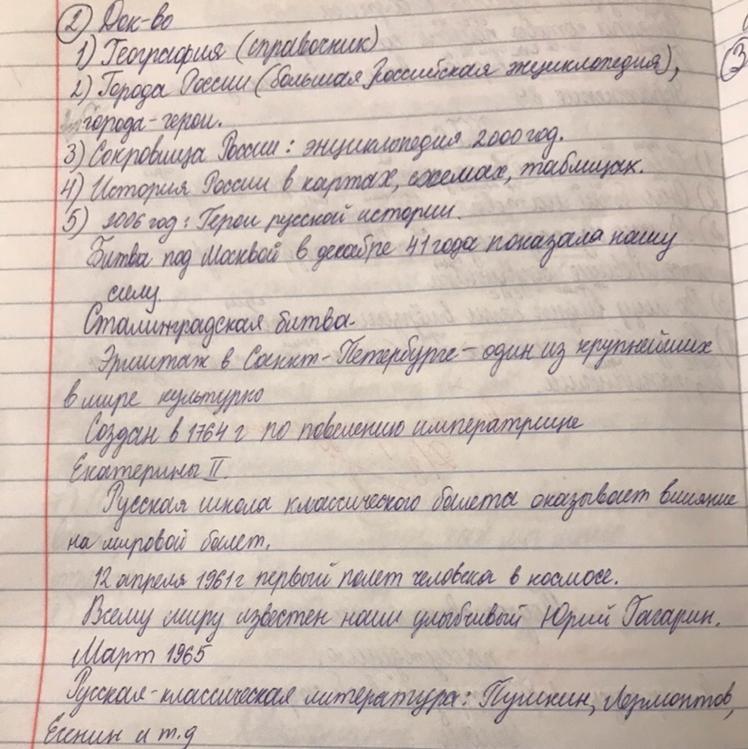 2) Док-во
1) География (справочник)
2) Города России (большая Российская энциклопедия),
города-герои.
3) Сокровища России: энциклопедия 2000 год.
4) История России в картах, схемах, таблицах.
5) 2006 год: Герои русской истории.
Битва под Москвой в декабре 41 года показала нашу
силу.
Сталинградская битва.
Эрмитаж в Санкт-Петербурге - один из крупнейших
в мире культурно
Создан в 1764 г по повелению императрице
Екатерины II.
Русская школа классического балета оказывает влияние
на мировой балет.
12 апреля 1961 г первый полет человека в космосе.
Всему миру известен наш улыбчивый Юрий Гагарин.
Март 1965
Русская-классическая литература: Пушкин, Лермонтов,
Есенин и т.д
(3